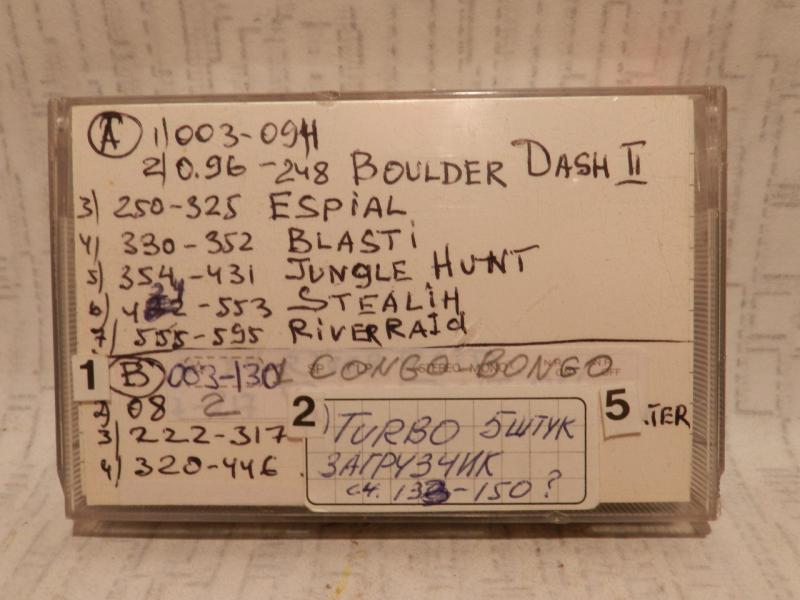 A 1) 003-094
2) 0.96-248 BOULDER DASH II
3) 250-325 ESPIAL
4) 330-352 BLASTI
5) 354-431 JUNGLE HUNT
6) -553 STEALIH
7) 555-595 RIVERRAID
1 B 003-130 CONGO BONGO
2) 08 2
3) 222-317
4) 320-446
2 ) TURBO 5 ШТУК
ЗАГРУЗЧИК
СЧ. 133-150?
5 .TER